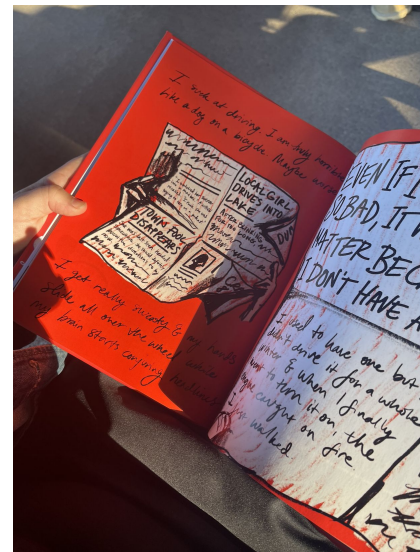 I suck at driving. I am truly terrible.
Like a dog on a bicycle. Maybe worse
LOCAL GIRL
DRIVES INTO
LAKE
TOWN POOL
DISAPPEARS
I get really sweaty & my hands
slide all over the wheel while
my brain starts conjuring headlines
EVEN IF I
SO BAD, IT
MATTER BEC
I DON'T HAVE A
I used to have one but
didn't drive it for a whole
winter & when I finally
went to turn it on the
engine caught on fire
I just walked